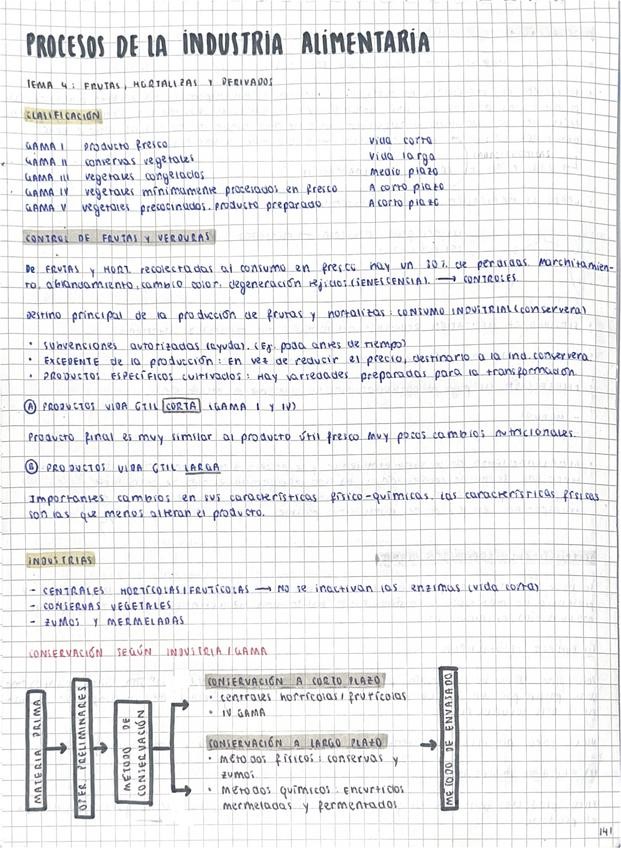 PROCESOS DE LA INDUSTRIA ALIMENTARIA
TEMA 4: FRUTAS, HORTALIZAS Y DERIVADOS
CLASIFICACIÓN
GAMA I producto fresco Vida corta
GAMA II conservas vegetales Vida larga
GAMA III vegetales congelados Medio plazo
GAMA IV vegetales mínimamente procesados en fresco A corto plazo
GAMA V vegetales precocinados. producto preparado A corto plazo
CONTROL DE FRUTAS Y VERDURAS
De FRUTAS y HORT. recolectadas al consumo en fresco hay un 30% de pérdidas. Marchitamien-
to, ablandamiento, cambio color, degeneración tejidos (SENESCENCIA). → CONTROLES
Destino principal de la producción de frutas y hortalizas: CONSUMO INDUSTRIAL (conservera)
• Subvenciones autorizadas (ayuda). (Ej. poda antes de tiempo)
• EXCEDENTE de la producción: En vez de reducir el precio, destinarlo a la ind. conservera
• PRODUCTOS ESPECÍFICOS cultivados: Hay variedades preparadas para la transformación
Ⓐ PRODUCTOS VIDA ÚTIL CORTA (GAMA I Y IV)
Producto final es muy similar al producto útil fresco. Muy pocos cambios nutricionales.
Ⓑ PRODUCTOS VIDA ÚTIL LARGA
Importantes cambios en sus características físico-químicas. Las características físicas
son las que menos alteran el producto.
INDUSTRIAS
- CENTRALES HORTÍCOLAS/FRUTÍCOLAS → NO se inactivan las enzimas (vida corta)
- CONSERVAS VEGETALES
- ZUMOS Y MERMELADAS
CONSERVACIÓN SEGÚN INDUSTRIA/GAMA
MATERIA PRIMA
OPER. PRELIMINARES
MÉTODO DE
CONSERVACIÓN
CONSERVACIÓN A CORTO PLAZO
• Centrales hortícolas/frutícolas
• IV GAMA
CONSERVACIÓN A LARGO PLAZO
• Métodos físicos: conservas y
zumos
• Métodos químicos: Encurtidos
mermeladas y fermentados
MÉTODO DE ENVASADO
141